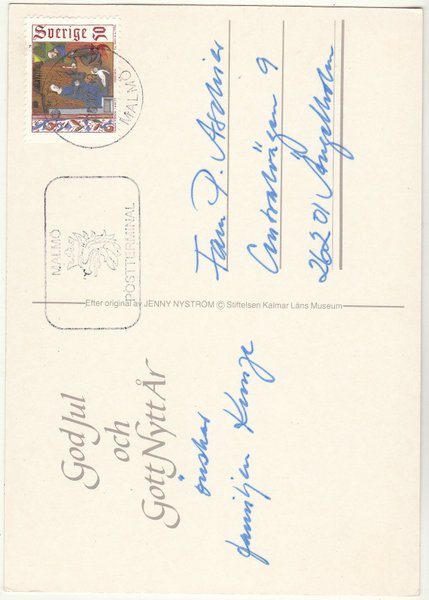 God Jul
och
Gott Nytt År
önskar
familjen Kunze
Efter original av JENNY NYSTRÖM © Stiftelsen Kalmar Läns Museum
Sverige 50
MALMÖ
MALMÖ
POSTTERMINAL
Fam P. Aschier
Centralvägen 9
262 01 Ängelholm